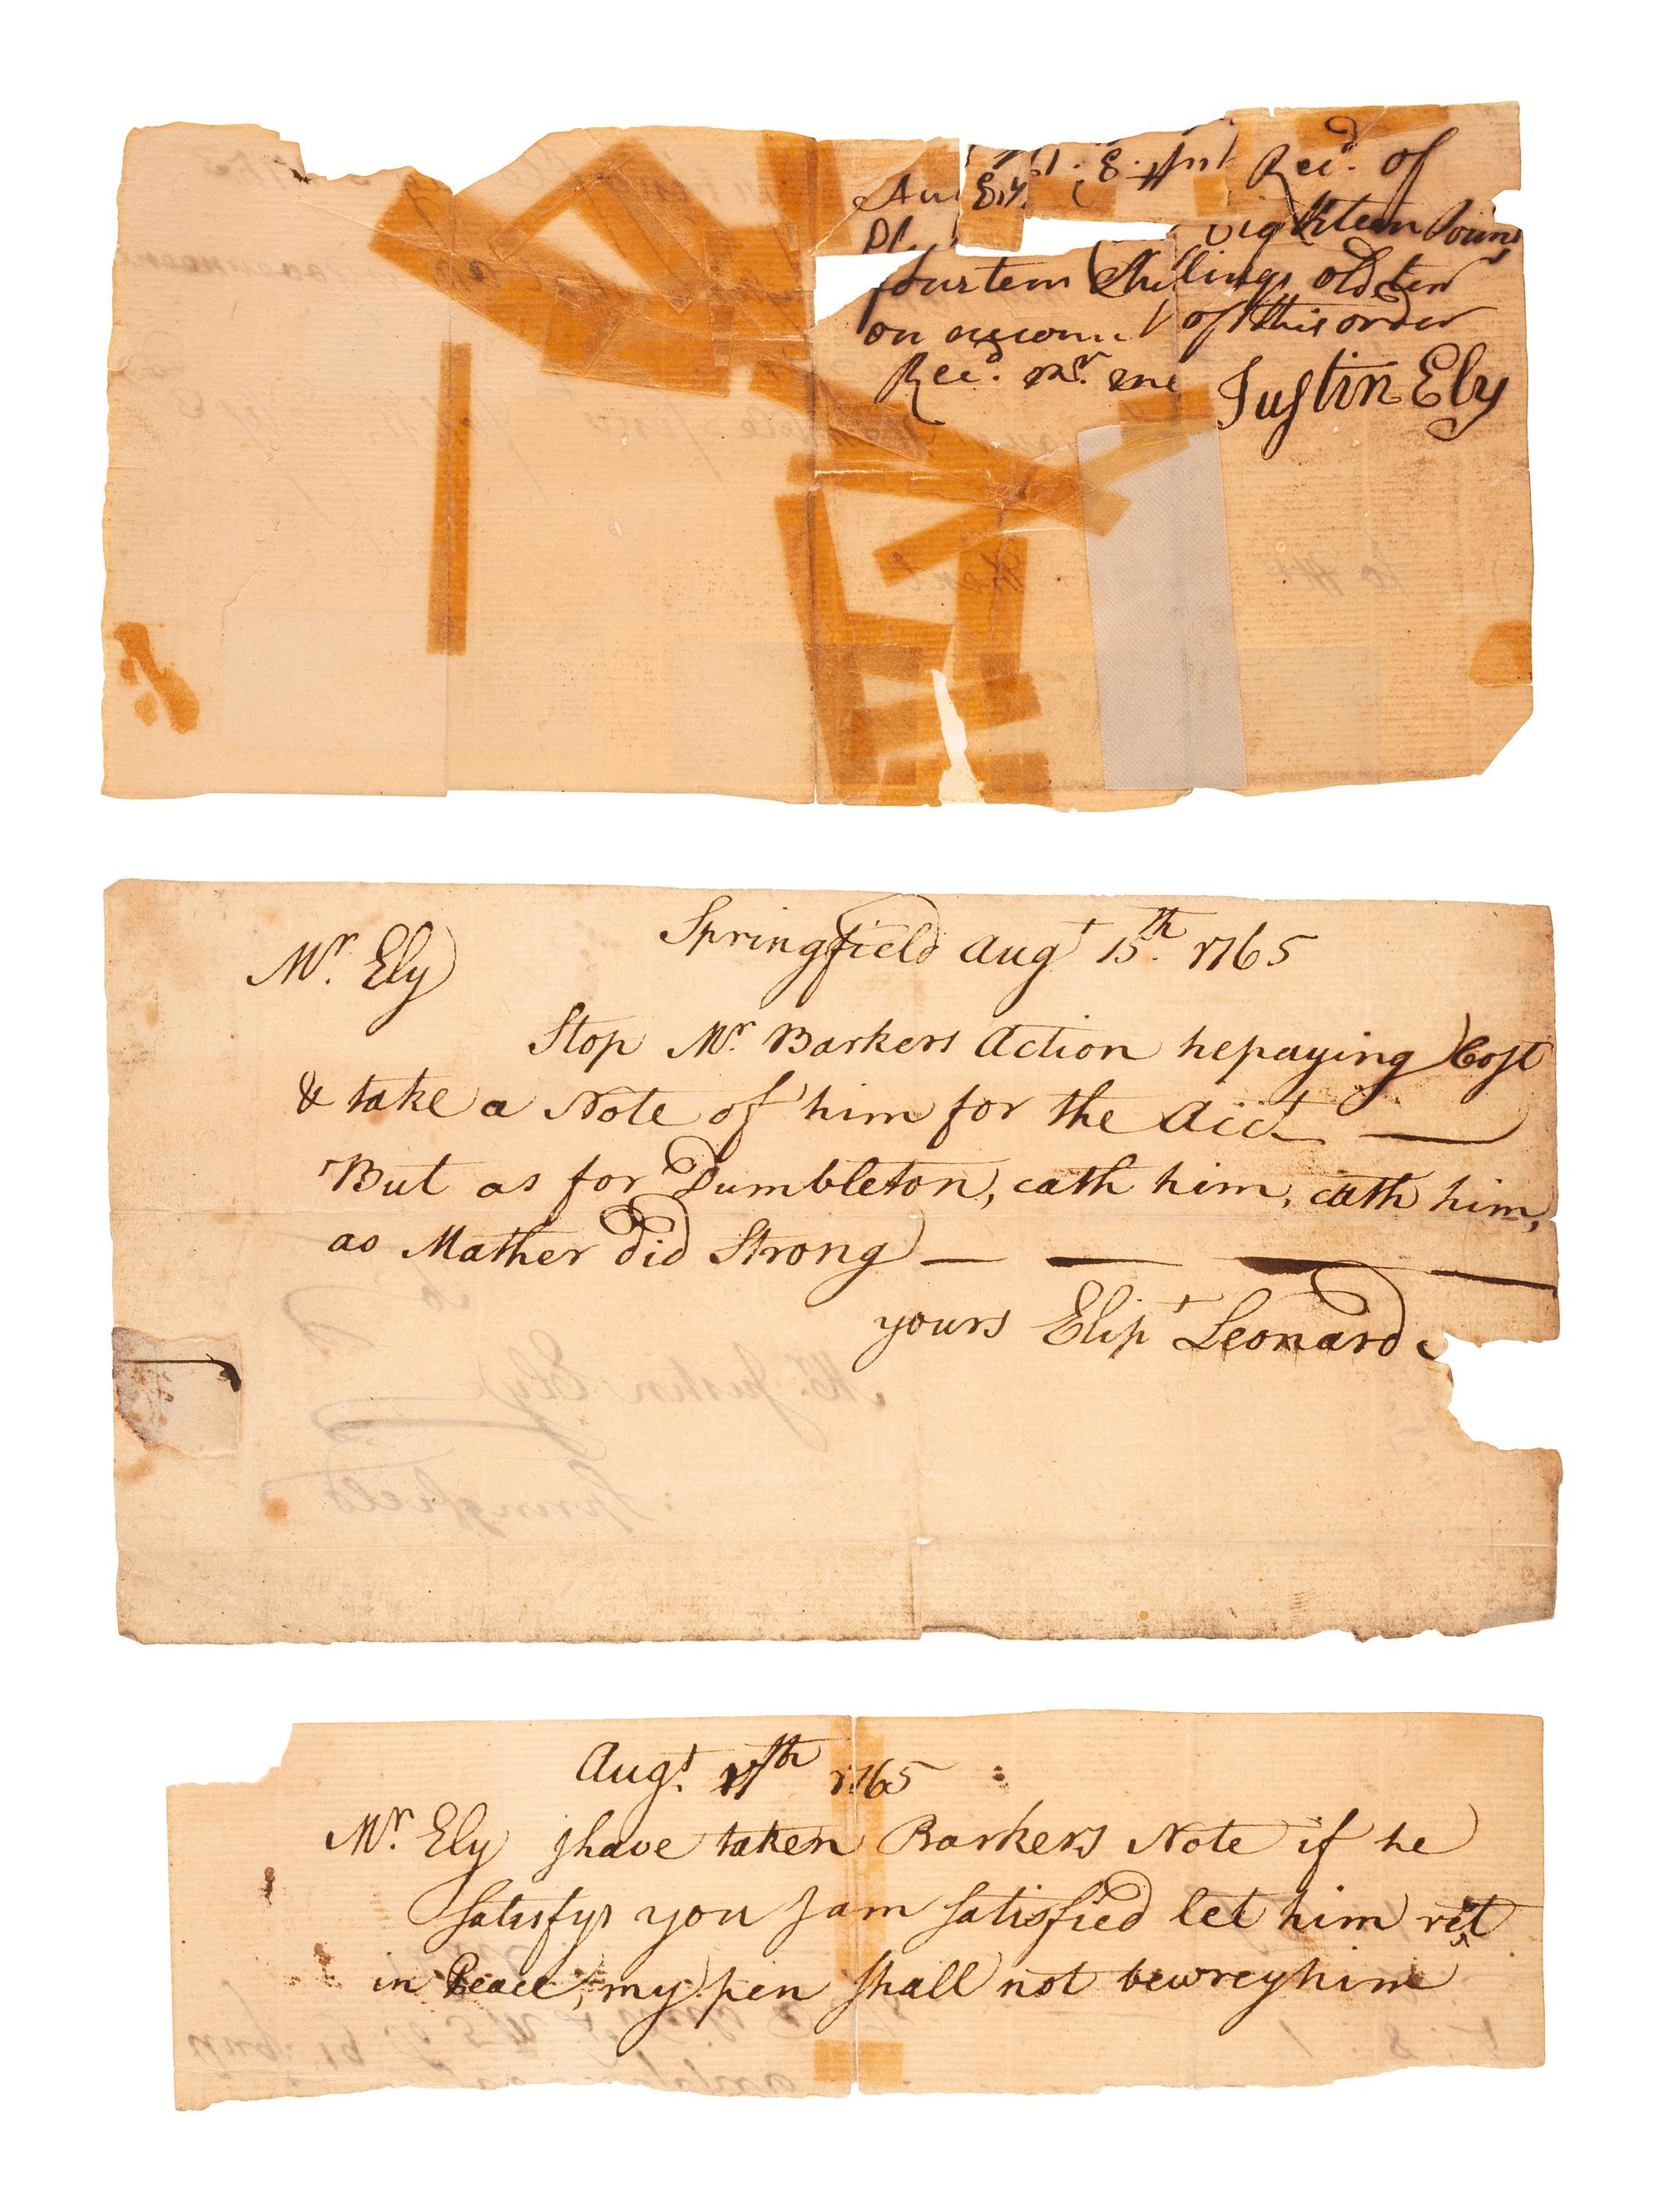 Recd. of
Eighteen Pouns
fourteen Shillings old ten
on accountt of this order
Recd. pr. me Justin Ely
Springfield Augt 15th. 1765
Mr. Ely
Stop Mr. Barkers Action hepaying Cost
& take a Note of him for the Acct
But as for Dumbleton, cath him, cath him,
as Mather did Strong
yours Elipt Leonard
Mr. Justin Ely
Springfield
Augt. 17th 1765
Mr. Ely Ihave taken Barkers Note if he
Satisfys you I am Satisfied let him rest
in Peace, my pen Shall not bewrey him